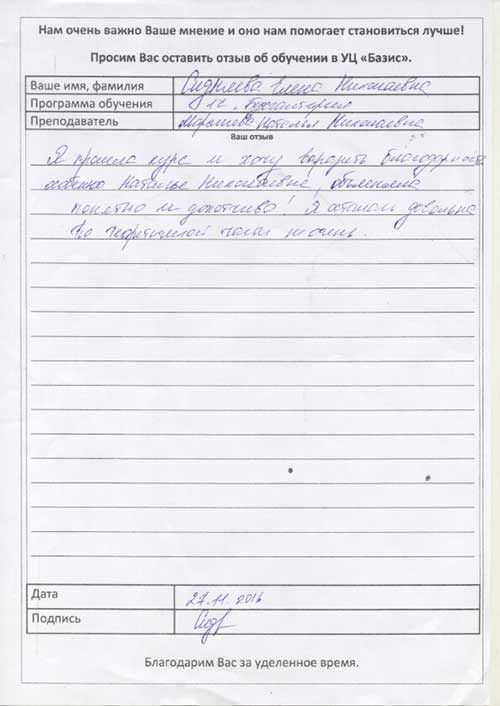 Нам очень важно Ваше мнение и оно нам помогает становиться лучше!
Просим Вас оставить отзыв об обучении в УЦ «Базис».
Ваше имя, фамилия Елена Николаевна
Программа обучения 1С, Бухгалтерия
Преподаватель Наталия Николаевна
Ваш отзыв
Я прошла курс и хочу выразить благодарность
особенно Наталье Николаевне, объясняла
понятно и доходчиво! Я осталась довольна
По теоретической части не очень.
Дата 27.11.2016
Подпись
Благодарим Вас за уделенное время.